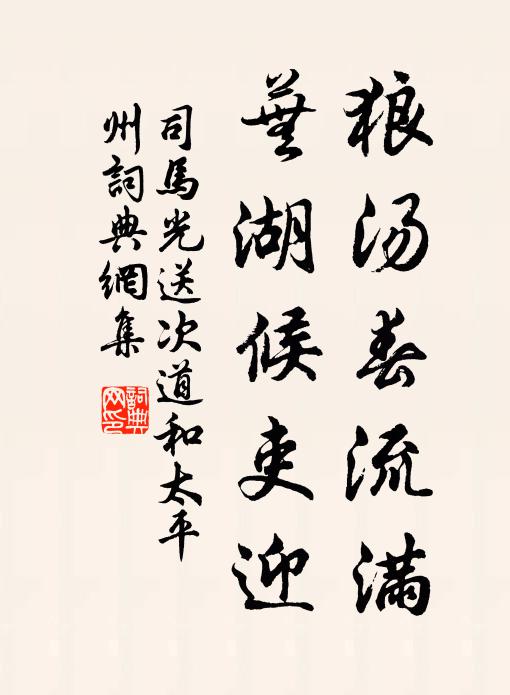 狼汤春流满
蕪湖候吏迎
司馬光送次道和太平
州詞典網集
詞典网印